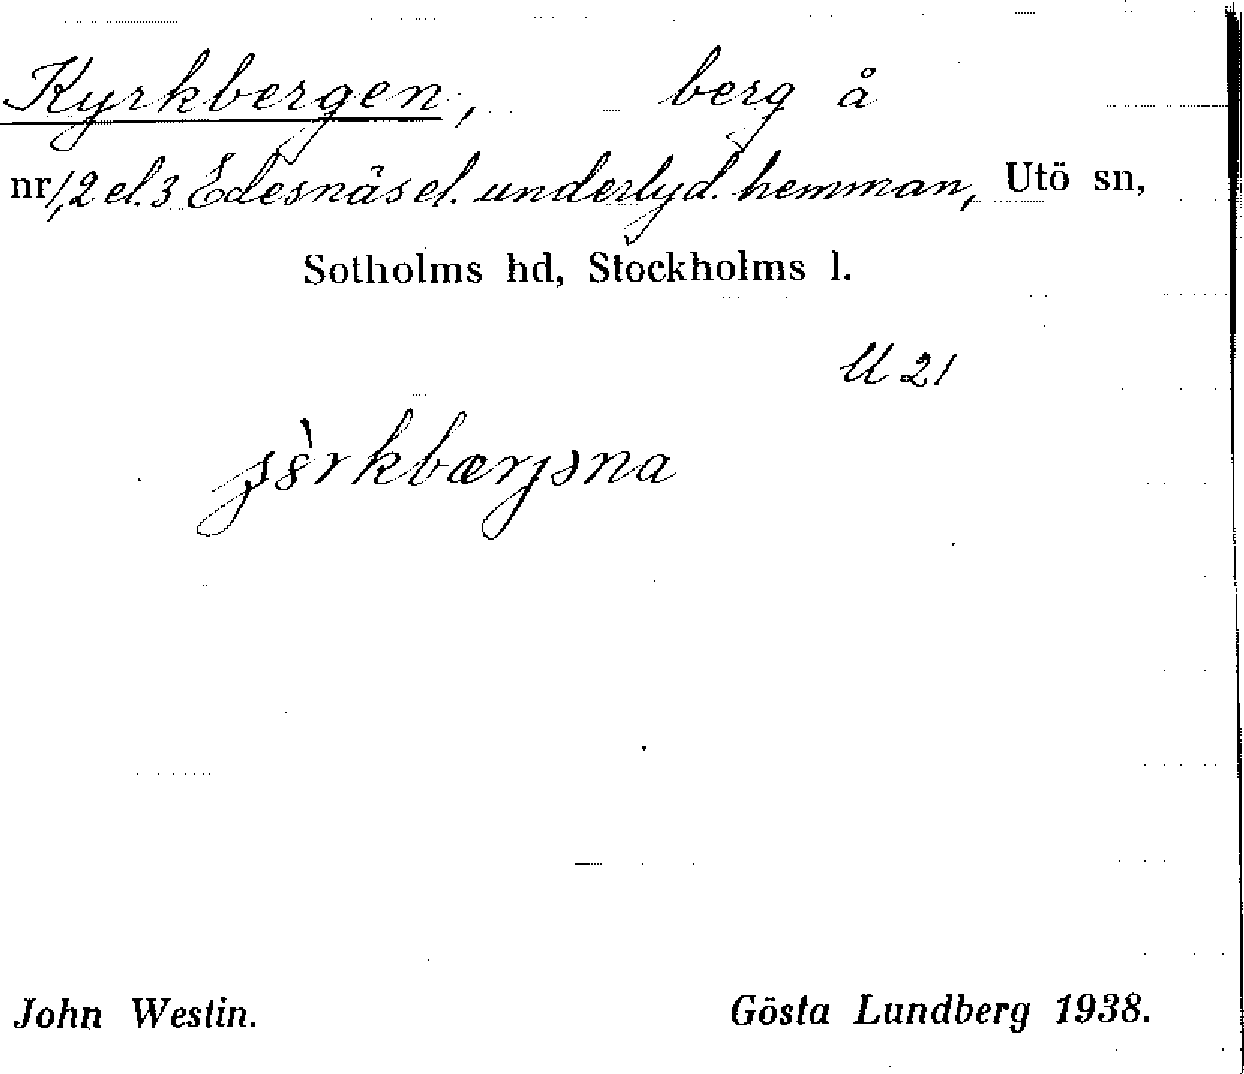 Kyrkbergen, berg å
nr 1, 2 el. 3 Edesnäs el. underlyd. hemman, Utö sn,
Sotholms hd, Stockholms l.
U 21
John Westin. Gösta Lundberg 1938.